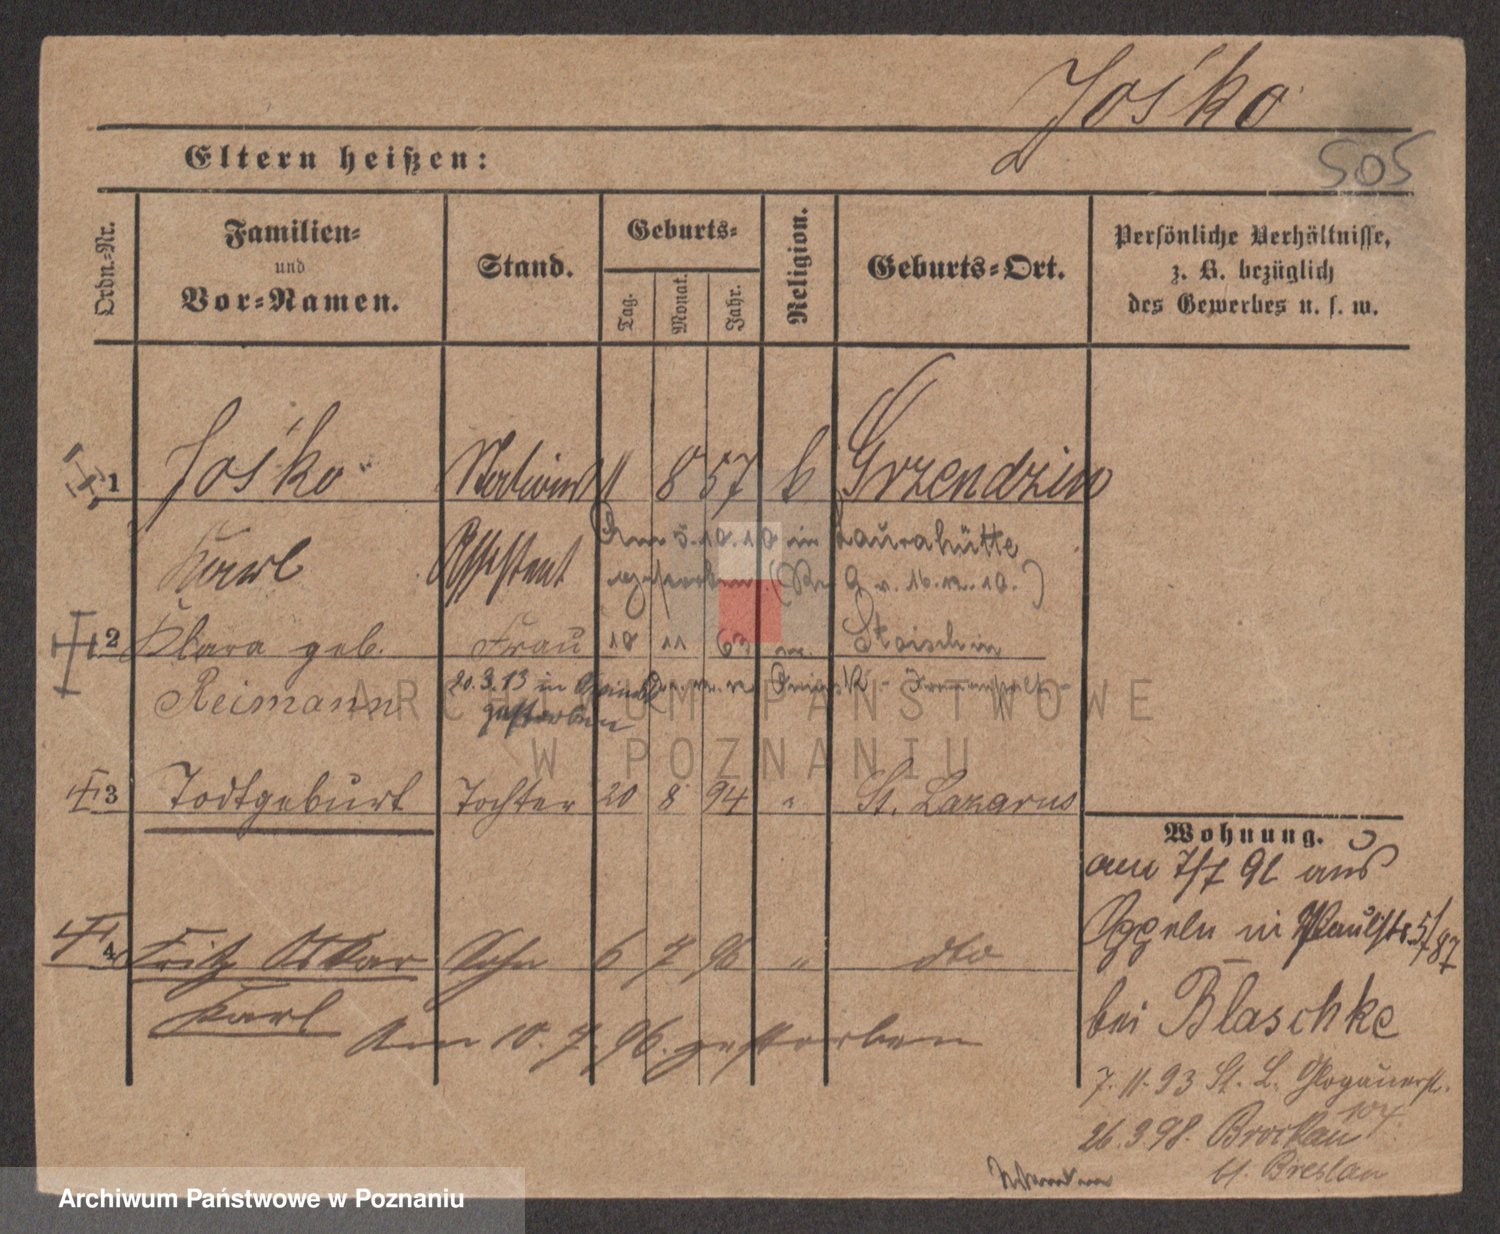 Jośko
505
Eltern heißen:
Ordn.-Nr.
Familien-
und
Vor-Namen.
Stand.
Geburts-
Tag.
Monat.
Jahr.
Religion.
Geburts-Ort.
Persönliche Verhältnisse,
z. B. bezüglich
des Gewerbes u. s. w.
1 Jośko Stations 11 8 57 k Grzendzin
Karl Assistent Am 5.10.10 in Laurahütte
gestorben (
2 Klara geb. Frau 18 11 63
Reimann 20.3.13 in
gestorben
3 Todtgeburt Tochter 20 8 94 " St. Lazarus
4 Fritz Oskar Sohn 6 7 96 " dto
Karl Am 10.7.96. gestorben
Wohnung.
am 7/7 91 aus
Oppeln in Paulstr. 5/
87
bei Blaschke
7.11.93 St. L. Glogauerstr.
104.
26.3.98. Brockau
b/. Breslau
ARCHIWUM PAŃSTWOWE
W POZNANIU
Archiwum Państwowe w Poznaniu